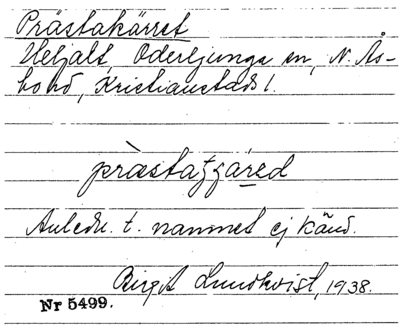 Prästakärret
Heljalt, Oderljunga sn, N. Ås-
bo hd, Kristianstads l.
Anledn. t. namnet ej känd.
Birgit Lundkvist, 1938.
Nr 5499.